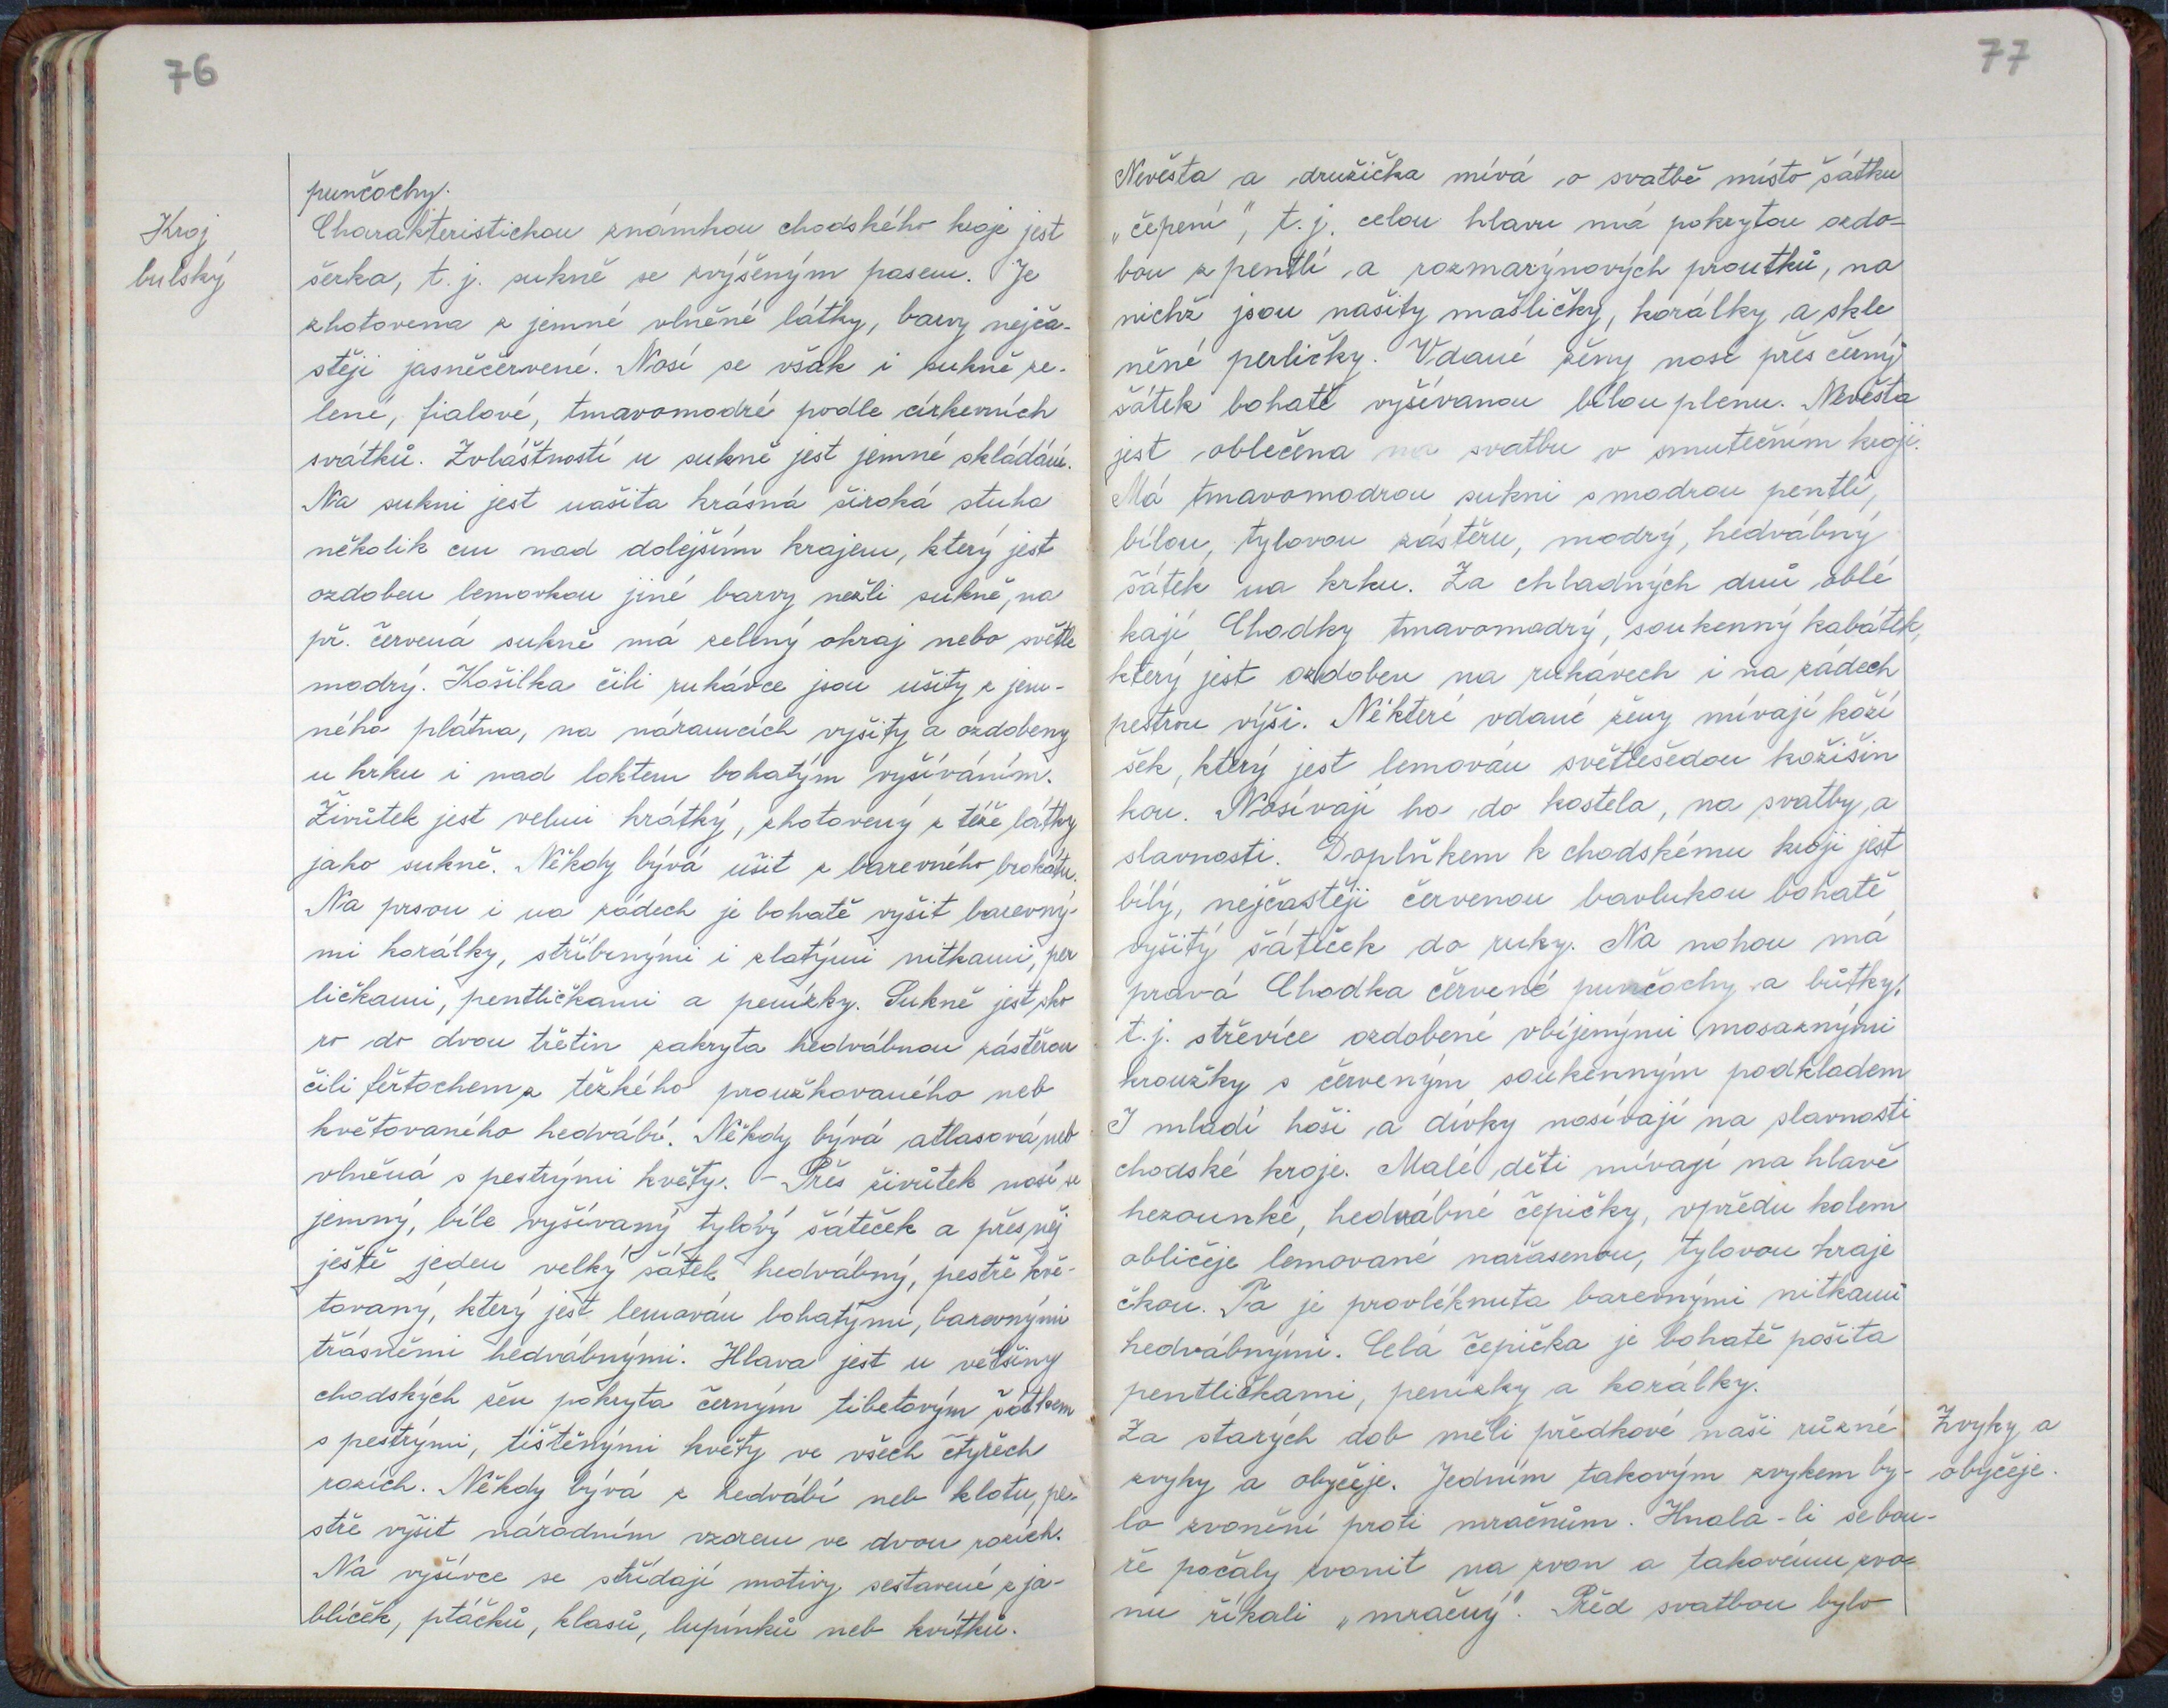 76
punčochy.
Kroj
bulský
Charakteristickou známkou chodského kroje jest
šerka, t. j. sukně se zvýšeným pasem. Je
zhotovena z jemné vlněné látky, barvy nejča-
stěji jasněčervené. Nosí se však i sukně ze-
lené, fialové, tmavomodré podle církevních
svátků. Zvláštností u sukně jest jemné skládání.
Na sukni jest našita krásná široká stuha
několik cm nad dolejším krajem, který jest
ozdoben lemovkou jiné barvy nežli sukně, na
př. červená sukně má zelený okraj nebo světle
modrý. Košilka čili rukávce jsou ušity z jem-
ného plátna, na náramcích vyšity a ozdobeny
u krku i nad loktem bohatým vyšíváním.
Živůtek jest velmi krátký, zhotovený z téže látky
jako sukně. Někdy bývá ušit z barevného brokátu.
Na prsou i na zádech je bohatě vyšit barevný-
mi korálky, stříbrnými i zlatými nitkami, per
ličkami, pentličkami a penízky. Sukně jest sko
ro do dvou třetin zakryta hedvábnou zástěrou
čili fěrtochem z těžkého proužkovaného neb
květovaného hedvábí. Někdy bývá atlasová neb
vlněná s pestrými květy. – Přes živůtek nosí se
jemný, bíle vyšívaný tylový šáteček a přes něj
ještě jeden velký šátek hedvábný, pestře kvě-
tovaný, který jest lemován bohatými, barevnými
třásněmi hedvábnými. Hlava jest u většiny
chodských žen pokryta černým tibetovým šátkem
s pestrými, tištěnými květy ve všech čtyřech
rozích. Někdy bývá z hedvábí neb klotu, pe-
stře vyšit národním vzorem ve dvou rozích.
Na vyšívce se střídají motivy sestavené z ja-
blíček, ptáčků, klasů, lupínků neb kvítků.
77
Nevěsta a družička mívá o svatbě místo šátku
„čepení", t. j. celou hlavu má pokrytou ozdo-
bou z pentlí a rozmarýnových proutků, na
nichž jsou našity mašličky, korálky a skle
něné perličky. Vdané ženy nosí přes černý
šátek bohatě vyšívanou bílou plenu. Nevěsta
jest oblečena na svatbu v smutečním kroji.
Má tmavomodrou sukni s modrou pentlí,
bílou, tylovou zástěru, modrý, hedvábný
šátek na krku. Za chladných dnů oblé
kají Chodky tmavomodrý, soukenný kabátek,
který jest ozdoben na rukávech i na zádech
pestrou výši. Některé vdané ženy mívají koží
šek, který jest lemován světlešedou kožišin
kou. Nosívají ho do kostela, na svatby, a
slavnosti. Doplňkem k chodskému kroji jest
bílý, nejčastěji červenou bavlnkou bohatě
vyšitý šáteček do ruky. Na nohou má
pravá Chodka červené punčochy a bůtky,
t. j. střevíce ozdobené vbíjenými mosaznými
kroužky s červeným soukenným podkladem
I mladí hoši a dívky nosívají na slavnosti
chodské kroje. Malé děti mívají na hlavě
hezounké, hedvábné čepičky, vpředu kolem
obličeje lemované nařasenou, tylovou kraje
čkou. Ta je provléknuta barevnými nitkami
hedvábnými. Celá čepička je bohatě pošita
pentličkami, penízky a korálky.
Zvyky a
obyčeje.
Za starých dob měli předkové naši různé
zvyky a obyčeje. Jedním takovým zvykem by-
lo zvonění proti mračnům. Hnala-li se bou-
ře počaly zvonit na zvon a takovému zvo-
nu říkali „mračný". Před svatbou bylo